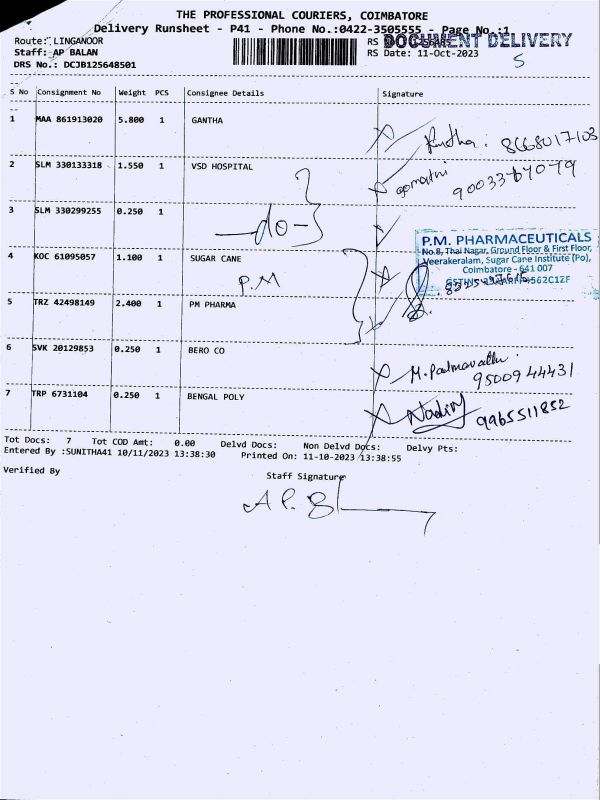 THE PROFESSIONAL COURIERS, COIMBATORE
Delivery Runsheet - P41 - Phone No.:0422-3505555 - Page No.:1
Route: LINGANOOR
DOCUMENT DELIVERY
Staff: AP BALAN
RS Date: 11-Oct-2023
5
DRS No.: DCJB125648501
S No Consignment No Weight PCS Consignee Details Signature
1 MAA 861913020 5.800 1 GANTHA
8668017103
2 SLM 330133318 1.550 1 VSD HOSPITAL
gomathi
3 SLM 330299255 0.250 1
-do-
P.M. PHARMACEUTICALS
No.8, Thai Nagar, Ground Floor & First Floor,
Veerakeralam, Sugar Cane Institute (Po),
Coimbatore - 641 007
4 KOC 61095057 1.100 1 SUGAR CANE
P.M
5 TRZ 42498149 2.400 1 PM PHARMA
6 SVK 20129853 0.250 1 BERO CO
M. Padmavathi
9500944431
7 TRP 6731104 0.250 1 BENGAL POLY
9965511852
Tot Docs: 7 Tot COD Amt: 0.00 Delvd Docs: Non Delvd Docs: Delvy Pts:
Entered By :SUNITHA41 10/11/2023 13:38:30 Printed On: 11-10-2023 13:38:55
Verified By
Staff Signature